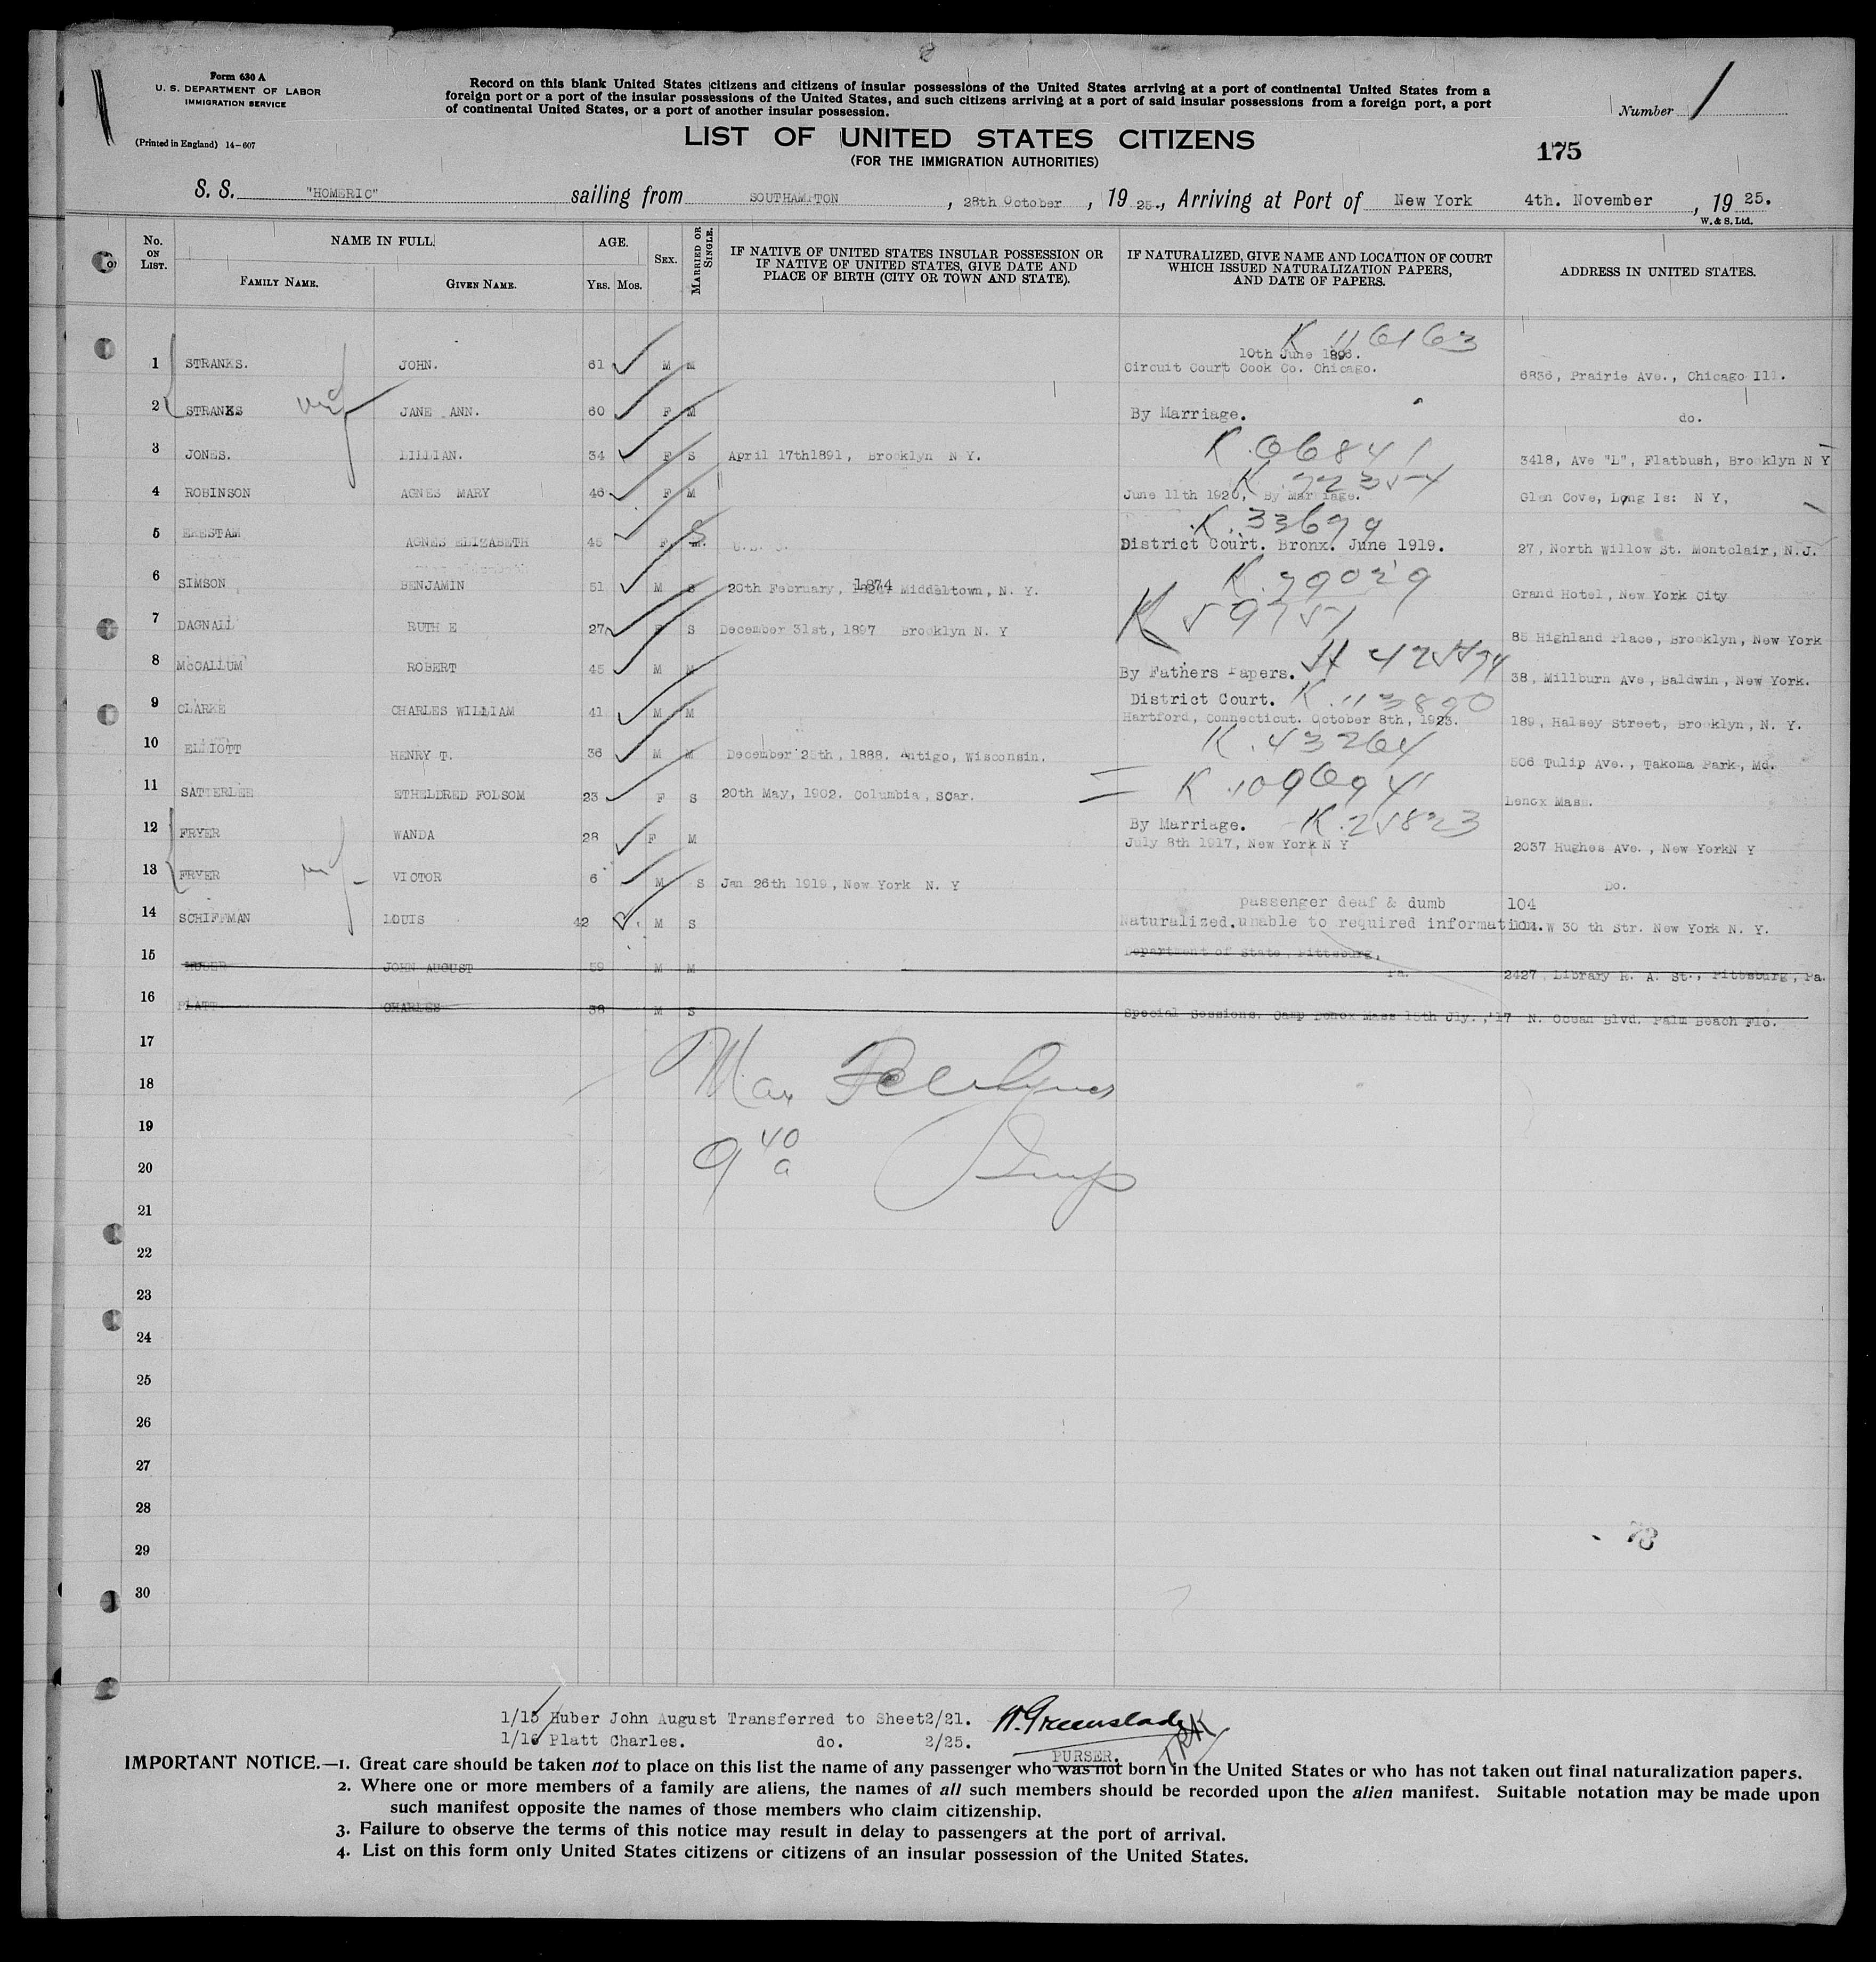 Form 630 A
U. S. DEPARTMENT OF LABOR
IMMIGRATION SERVICE
(Printed in England) 14-607
Record on this blank United States citizens and citizens of insular possessions of the United States arriving at a port of continental United States from a
foreign port or a port of the insular possessions of the United States, and such citizens arriving at a port of said insular possessions from a foreign port, a port
of continental United States, or a port of another insular possession.
Number 1
LIST OF UNITED STATES CITIZENS
(FOR THE IMMIGRATION AUTHORITIES)
175
S. S. "HOMERIC" sailing from SOUTHAMPTON, 28th October, 1925., Arriving at Port of New York 4th. November, 1925.
W. & S. Ltd.
No. ON LIST. NAME IN FULL. FAMILY NAME. GIVEN NAME. AGE. YRS. MOS. SEX. MARRIED OR SINGLE. IF NATIVE OF UNITED STATES INSULAR POSSESSION OR IF NATIVE OF UNITED STATES, GIVE DATE AND PLACE OF BIRTH (CITY OR TOWN AND STATE). IF NATURALIZED, GIVE NAME AND LOCATION OF COURT WHICH ISSUED NATURALIZATION PAPERS, AND DATE OF PAPERS. ADDRESS IN UNITED STATES.
K 116163
1 STRANKS. JOHN. 61 M M 10th June 1896. Circuit Court Cook Co. Chicago. 6836, Prairie Ave., Chicago Ill.
2 STRANKS JANE ANN. 60 F M By Marriage. do.
K. 66841
3 JONES. LILLIAN. 34 F S April 17th1891, Brooklyn N Y. 3418, Ave "L", Flatbush, Brooklyn N Y
4 ROBINSON AGNES MARY 46 F M June 11th 1920, By Marriage. Glen Cove, Long Is: N Y,
K. 33679
5 AGNES ELIZABETH 45 F M. S District Court. Bronx. June 1919. 27, North Willow St. Montclair, N.J.
K. 79029
6 SIMSON BENJAMIN 51 M S 20th February, 1874 Middltown, N. Y. Grand Hotel, New York City
K 59751
7 DAGNALL RUTH E 27 F S December 31st, 1897 Brooklyn N. Y 85 Highland Place, Brooklyn, New York
8 McCALLUM ROBERT 45 M M By Fathers Papers. 38, Millburn Ave, Baldwin, New York.
K. 113890
9 CLARKE CHARLES WILLIAM 41 M M District Court. Hartford, Connecticut. October 8th, 1923. 189, Halsey Street, Brooklyn, N. Y.
K. 43264
10 ELLIOTT HENRY T. 36 M M December 25th, 1888. Antigo, Wisconsin. 506 Tulip Ave., Takoma Park, Md.
K 109694
11 SATTERLEE ETHELDRED FOLSOM 23 F S 20th May, 1902. Columbia, SCar. Lenox Mass.
K. 25823
12 FRYER WANDA 28 F M By Marriage. July 8th 1917, New York N Y 2037 Hughes Ave., New YorkN Y
13 FRYER VICTOR 6 M S Jan 26th 1919, New York N. Y Do.
passenger deaf & dumb 104
14 SCHIFFMAN LOUIS 42 M S Naturalized.unable to required information. W 30 th Str. New York N. Y.
15 HUBER JOHN AUGUST 59 M M Department of State, Pittsburg, Pa. 2427, Library R. A. St., Pittsburg, Pa.
16 PLATT CHARLES 38 M S Special Sessions. Camp Lenox Mass 15th Jly.,'17 N. Ocean Blvd. Palm Beach Flo.
17
18 Max
19
20 9 40 a
21
22
23
24
25
26
27
28
29 73
30
1/15 Huber John August Transferred to Sheet2/21. W. Greenslade
1/16 Platt Charles. do. 2/25.
PURSER.
IMPORTANT NOTICE.—1. Great care should be taken not to place on this list the name of any passenger who was not born in the United States or who has not taken out final naturalization papers.
2. Where one or more members of a family are aliens, the names of all such members should be recorded upon the alien manifest. Suitable notation may be made upon
such manifest opposite the names of those members who claim citizenship.
3. Failure to observe the terms of this notice may result in delay to passengers at the port of arrival.
4. List on this form only United States citizens or citizens of an insular possession of the United States.